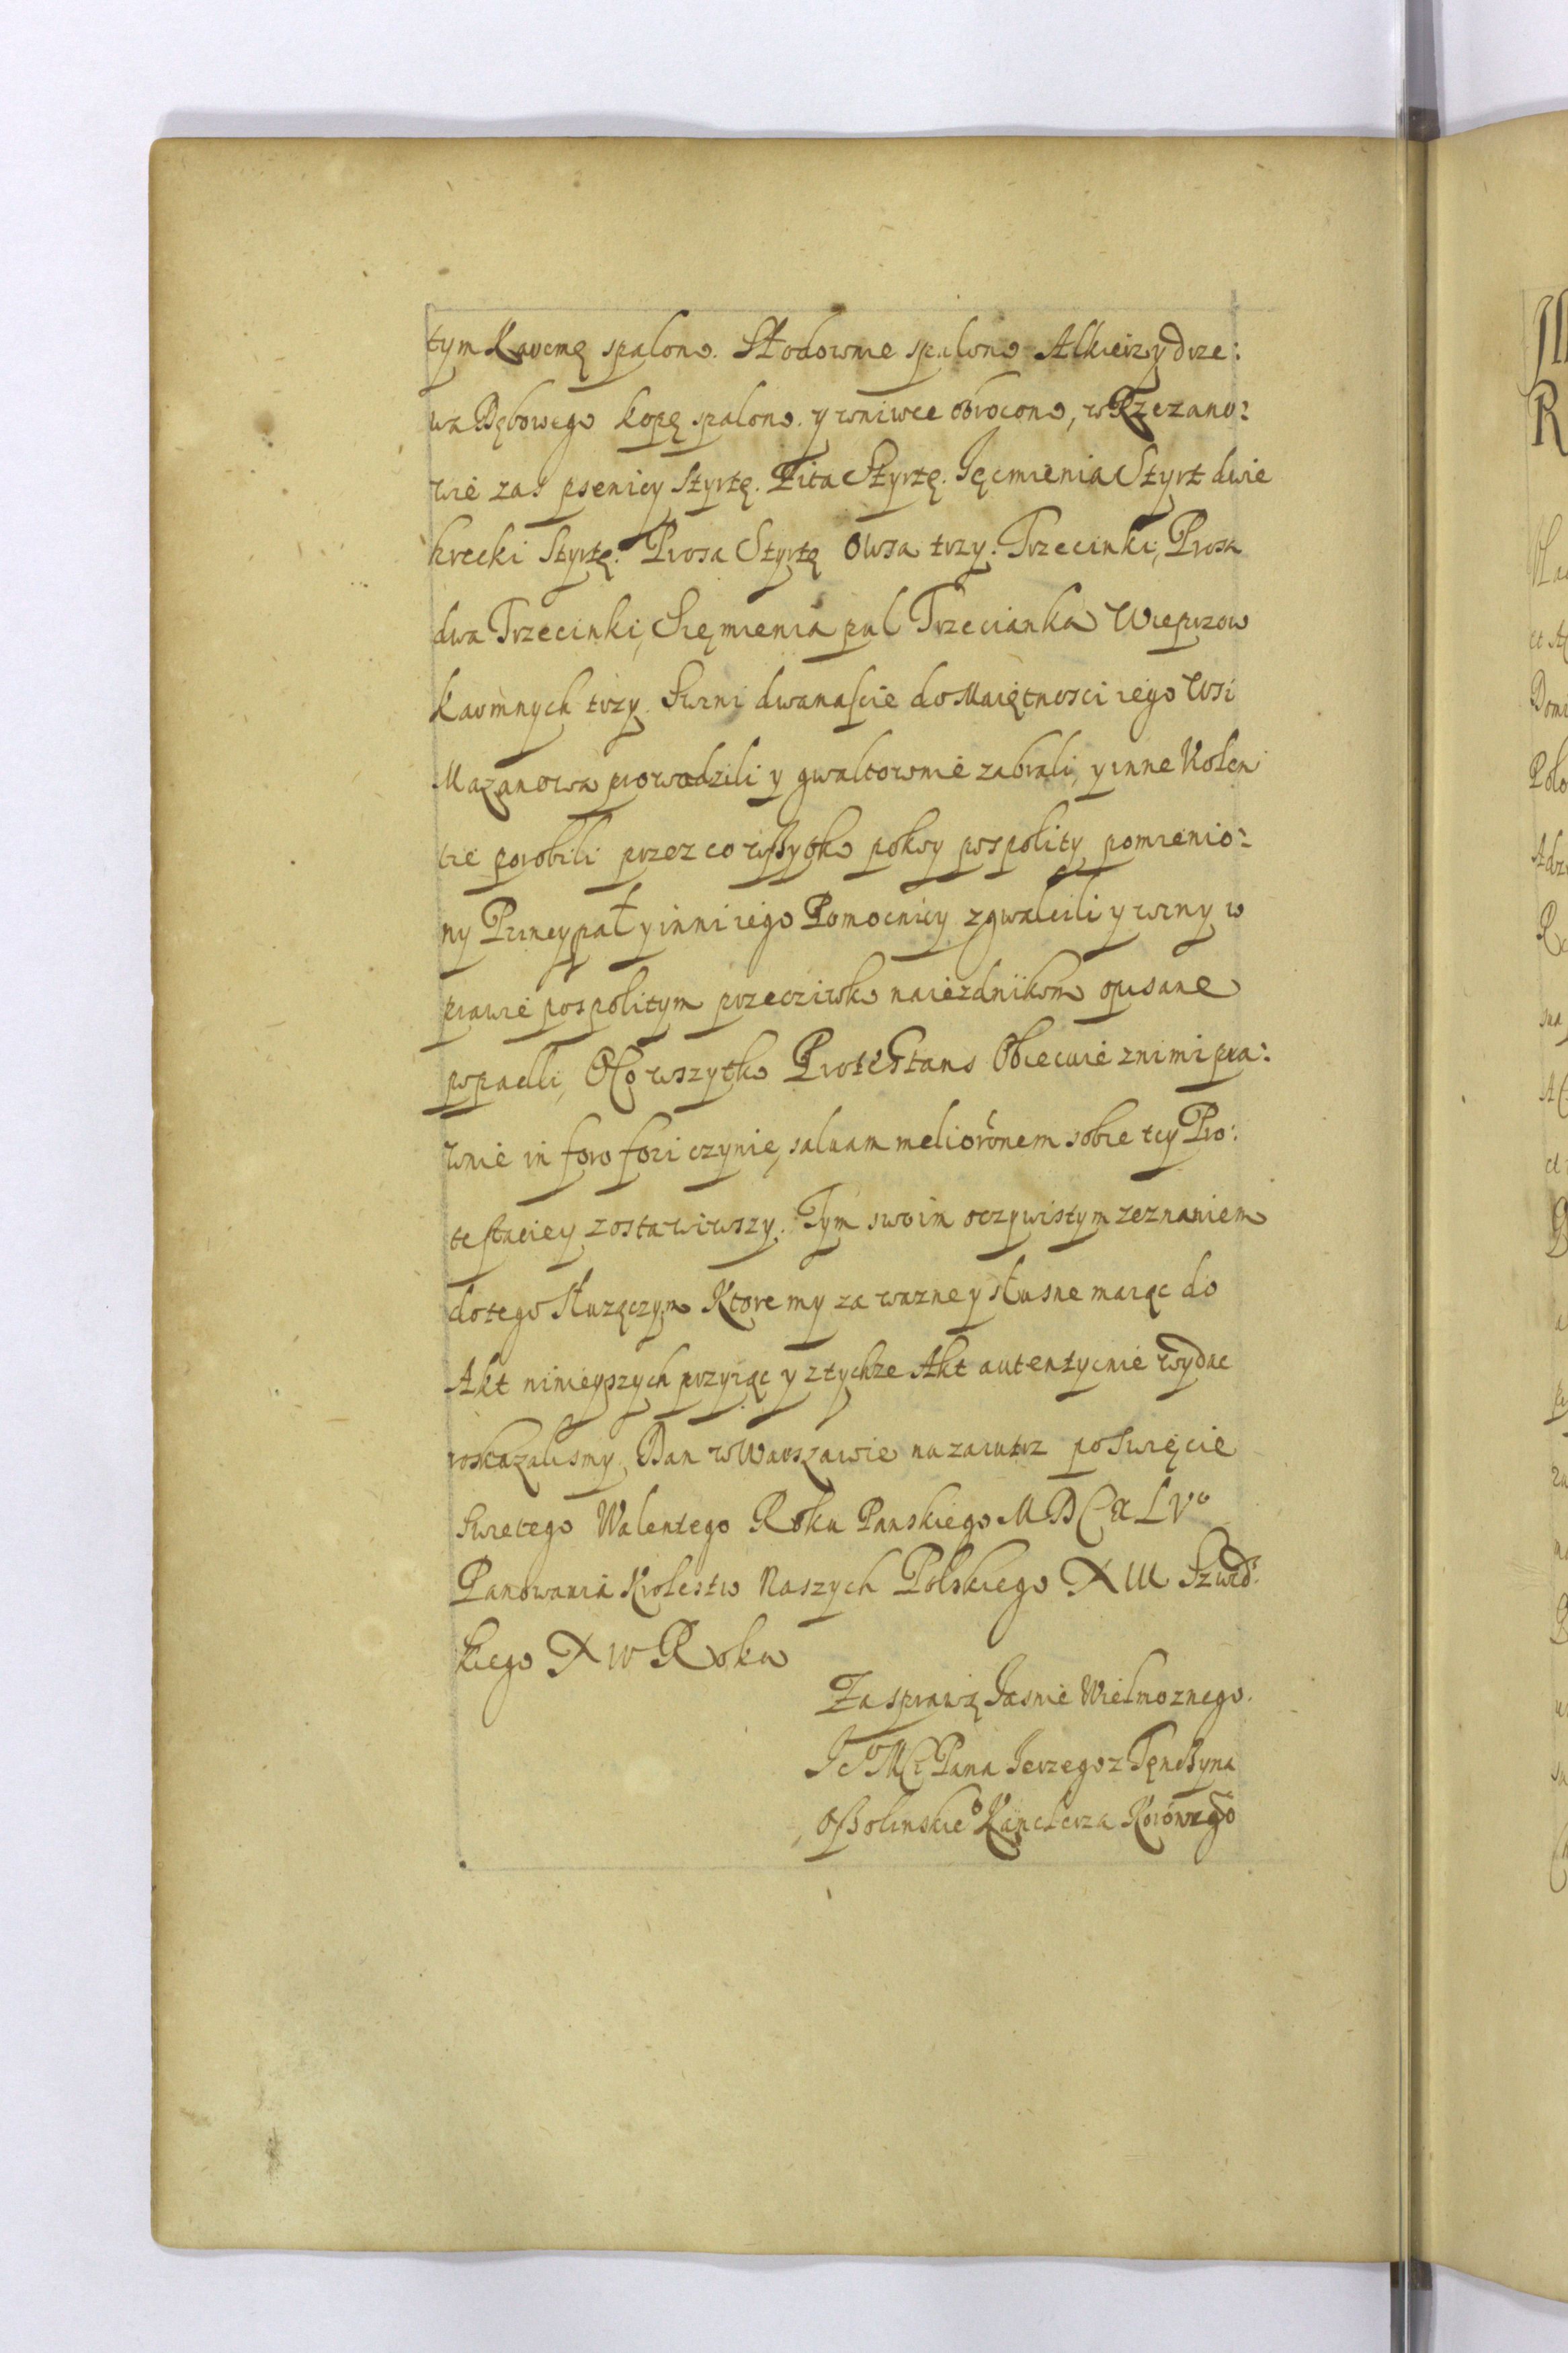 tym Karcmę spalono. Słodownie spalono Alkierzy drze:
wa Dębowego kopę spalono. y wniwec obrocono, w Rzezano:
wie zas psenicy Styrtę. Zita Styrtę. Jęcmienia Styrt dwie
hrecki Styrtę. Prosa Styrtę Owsa trzy. Trzecinki, Prosa
dwa Trzecinki, Sięmienia puł Trzecianka Wieprzow
karmnych trzy. Swini dwanaście do Maiętnosci iego Wsi
Mazanowa prowadzili y gwałtownie zabrali, y inne Wolen
cie porobili przez co wszytko pokoy pospolity pomienio:
ny Princypał y inni iego Pomocnicy zgwałcili y winy w
prawie pospolitym przeciwko naiezdnikom opisane
popadli, O Co wszytko Protestans Obiecuie z nimi pra:
wnie in foro fori czynic, saluam melioronem sobie tey Pro:
testaciey zostawiwszy. Tym swoim oczywistym zeznaniem
do tego służączym Ktore my za wazne y słusne maiąc do
Akt ninieyszych przyiąc y z tychze Akt autentycnie wydac
roskazalismy. Dan w Warszawie nazaiutrz po Swięcie
Swietego Walentego Roku Panskiego MDCXLVo
Panowania Krolestw Naszych Polskiego XIII Szwed:
kiego XIV Roku
Za sprawą Jasnie Wielmoznego.
Je° Mci Pana Jerzego z Tęnczyna
Oßolinskie° Kanclerza Koronnego